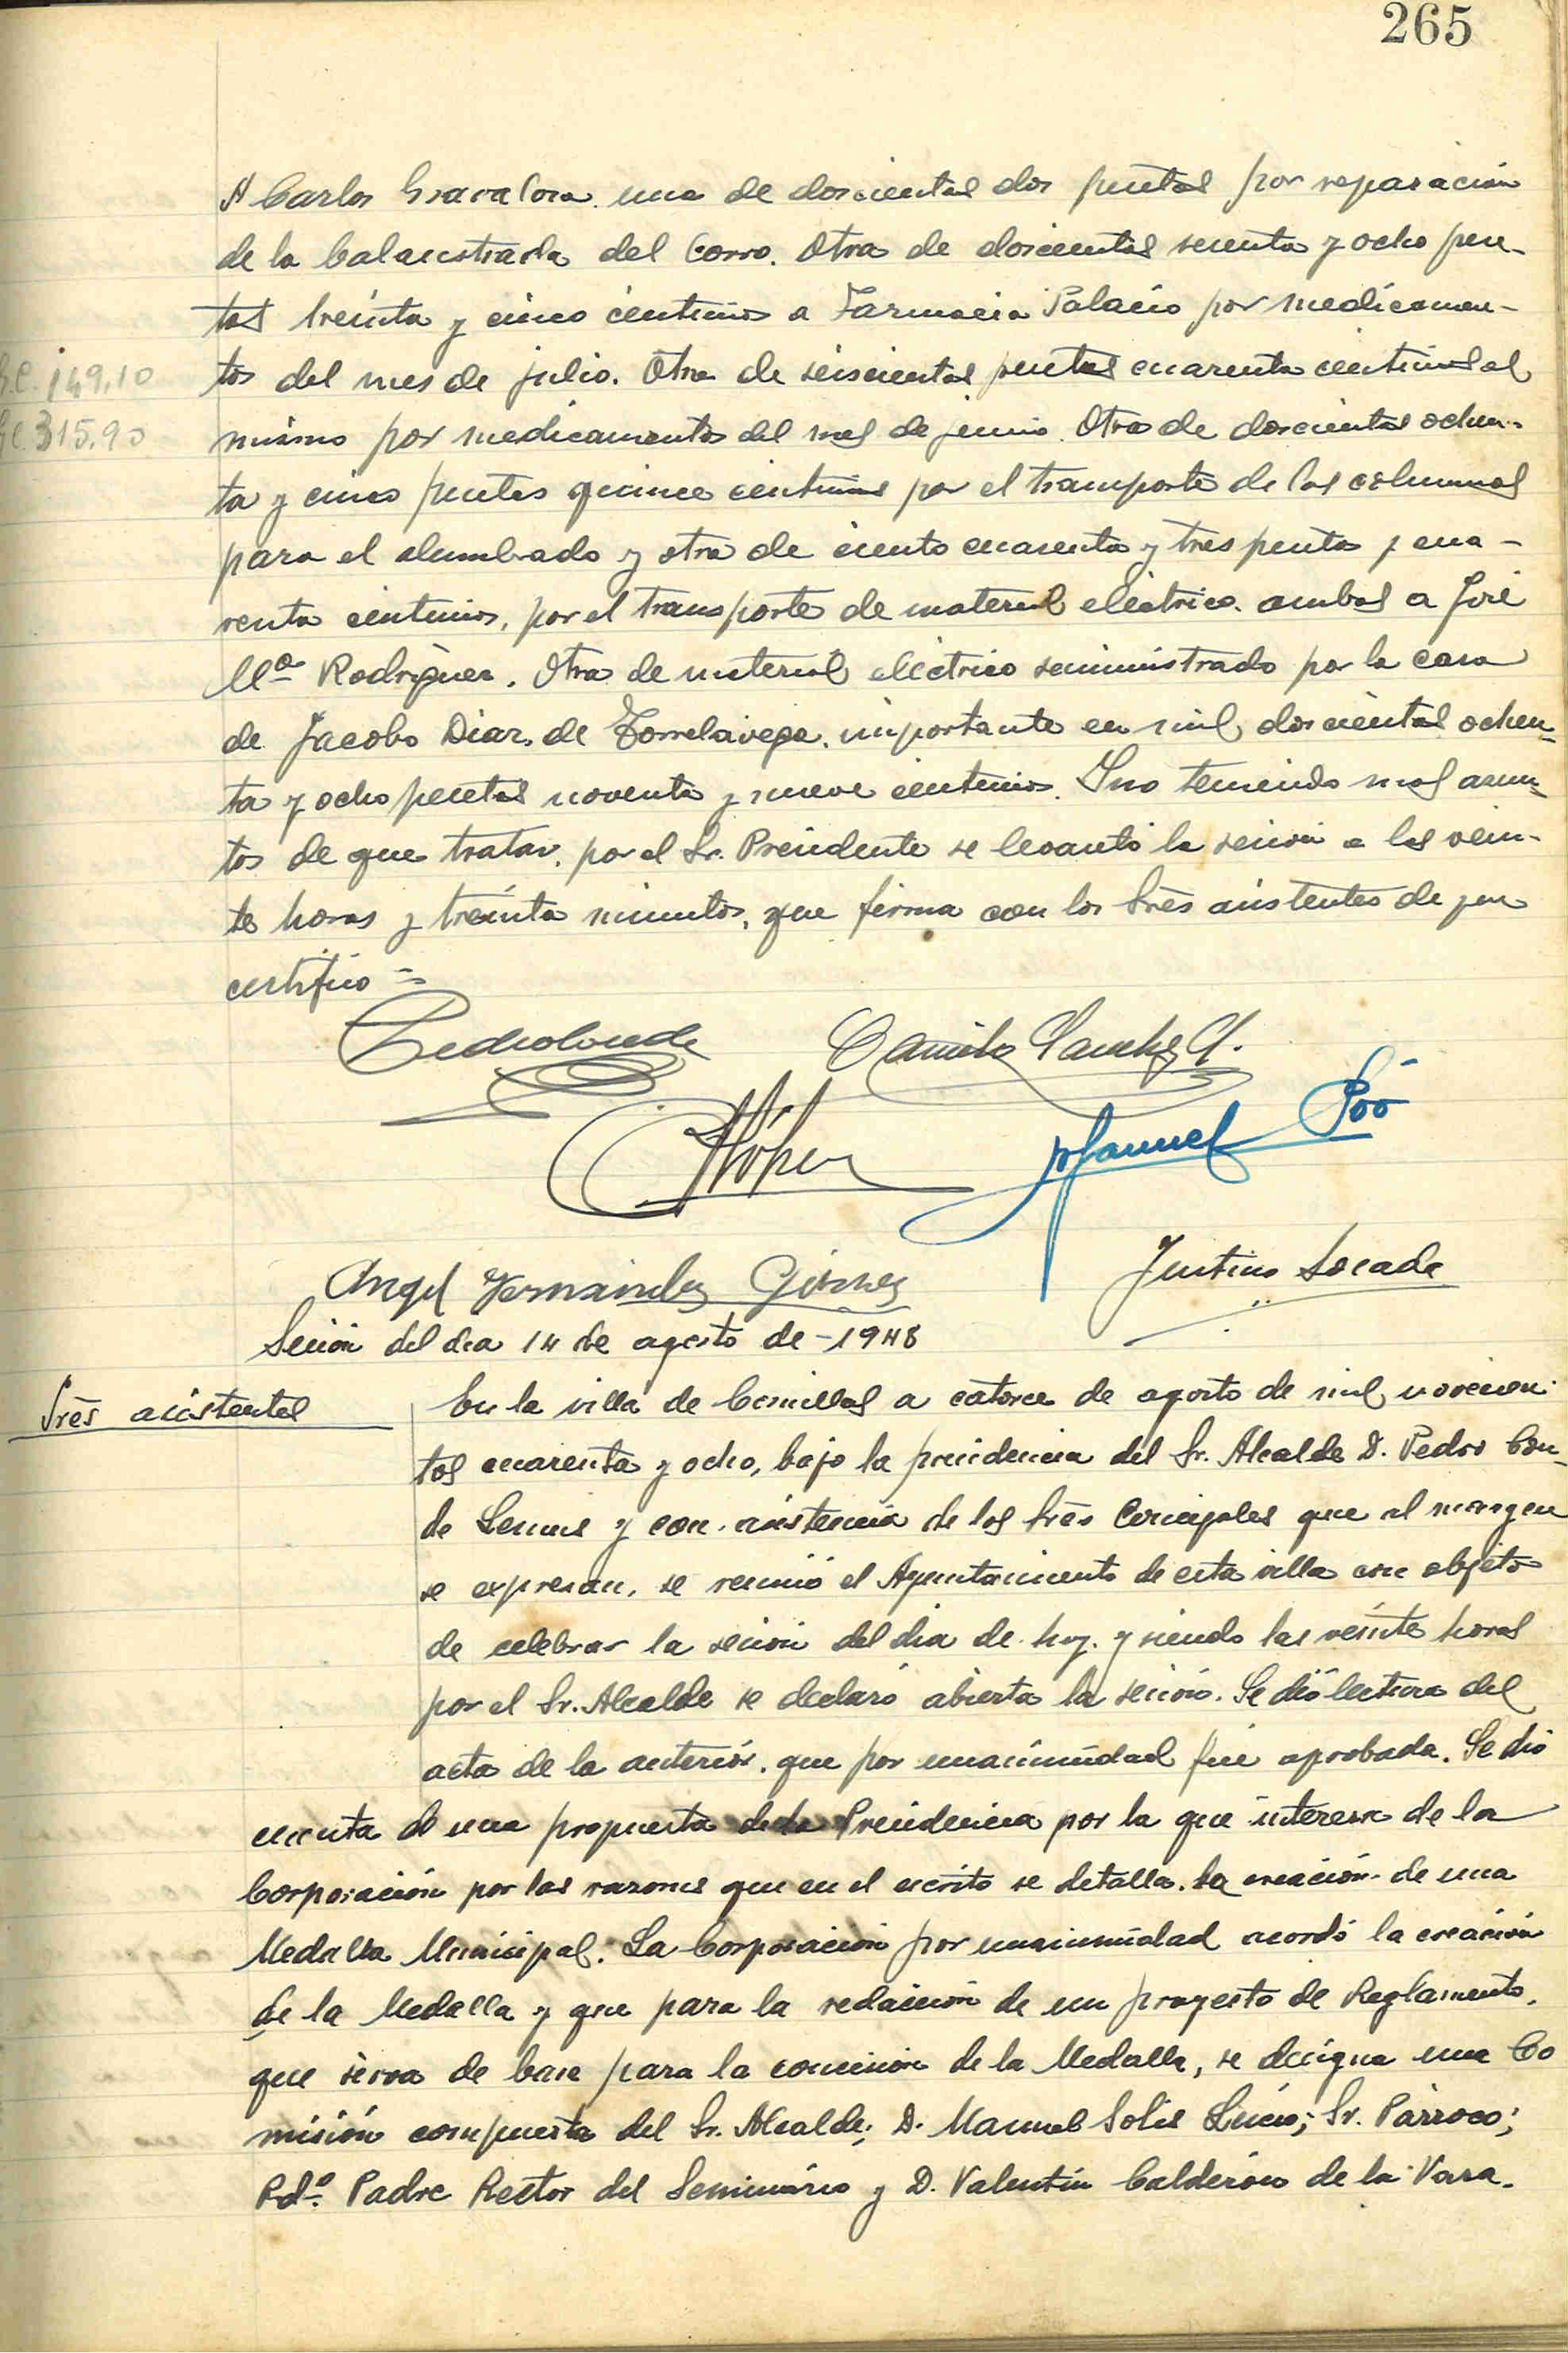 265
A Carlos una de doscientas dos pesetas por reparación
de la balaustrada del Corro. Otra de doscientas sesenta y ocho pese-
tas treinta y cinco centimos a Farmacia Palacio por medicamen-
G.C. 149,10
tos del mes de julio. Otra de seiscientas pesetas cuarenta centimos al
G.C. 315,90
mismo por medicamentos del mes de junio. Otra de doscientas ochen-
ta y cinco pesetas quince centimos por el transporte de las columnas
para el alumbrado y otra de ciento cuarenta y tres pesetas y cua-
renta centimos, por el transporte de material eléctrico. ambas a José
Mª Rodriguez. Otra de material eléctrico suministrado por la casa
de Jacobo Diaz, de Torrelavega, importante en mil doscientas ochen-
ta y ocho pesetas noventa y nueve centimos. Y no teniendo mas asun-
tos de que tratar, por el Sr. Presidente se levantó la sesión a las vein-
te horas y treinta minutos, que firma con los Sres asistentes de que
certifico =
Pedro Conde
Camilo Sanchez
Manuel Poo
Angel Fernández Gómez
Justino Locade
Sesión del dia 14 de agosto de -1948
Sres asistentes
En la villa de Comillas a catorce de agosto de mil novecien-
tos cuarenta y ocho, bajo la presidencia del Sr. Alcalde D. Pedro Con-
de Lemus y con asistencia de los Sres Concejales que al margen
se expresan, se reunió el Ayuntamiento de esta villa con objeto
de celebrar la sesión del dia de hoy, y siendo las veinte horas
por el Sr. Alcalde se declaró abierta la sesión. Se dió lectura del
acta de la anterior, que por unanimidad fué aprobada. Se dió
cuenta de una propuesta de la Presidencia por la que interesa de la
Corporación por las razones que en el escrito se detalla, la creación de una
Medalla Municipal. La Corporacion por unanimidad acordó la creación
de la Medalla y que para la redacción de un proyecto de Reglamento,
que sirva de base para la concesión de la Medalla, se designa una Co
misión compuesta del Sr. Alcalde; D. Manuel Solis Lucio; Sr. Párroco;
Rdº. Padre Rector del Seminario y D. Valentín Calderón de la Vara.